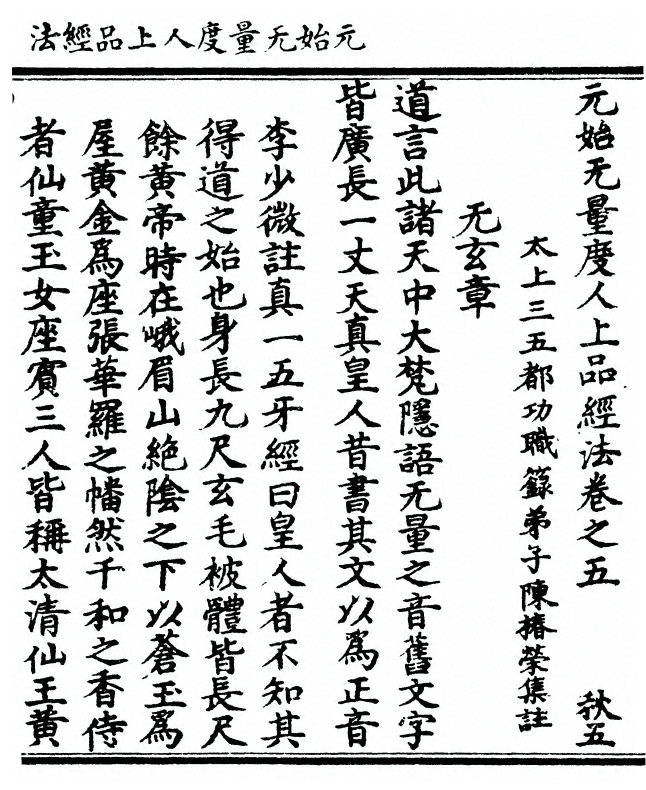 元始无量度人上品經法
元始无量度人上品經法卷之五 秋五
太上三五都功職籙弟子陳椿榮集註
无玄章
道言此諸天中大梵隱語无量之音舊文字
皆廣長一丈天真皇人昔書其文以爲正音
李少微註真一五牙經曰皇人者不知其
得道之始也身長九尺玄毛被體皆長尺
餘黃帝時在峨眉山絶陰之下以蒼玉爲
屋黃金爲座張華羅之幡然千和之香侍
者仙童玉女座賓三人皆稱太清仙王黃